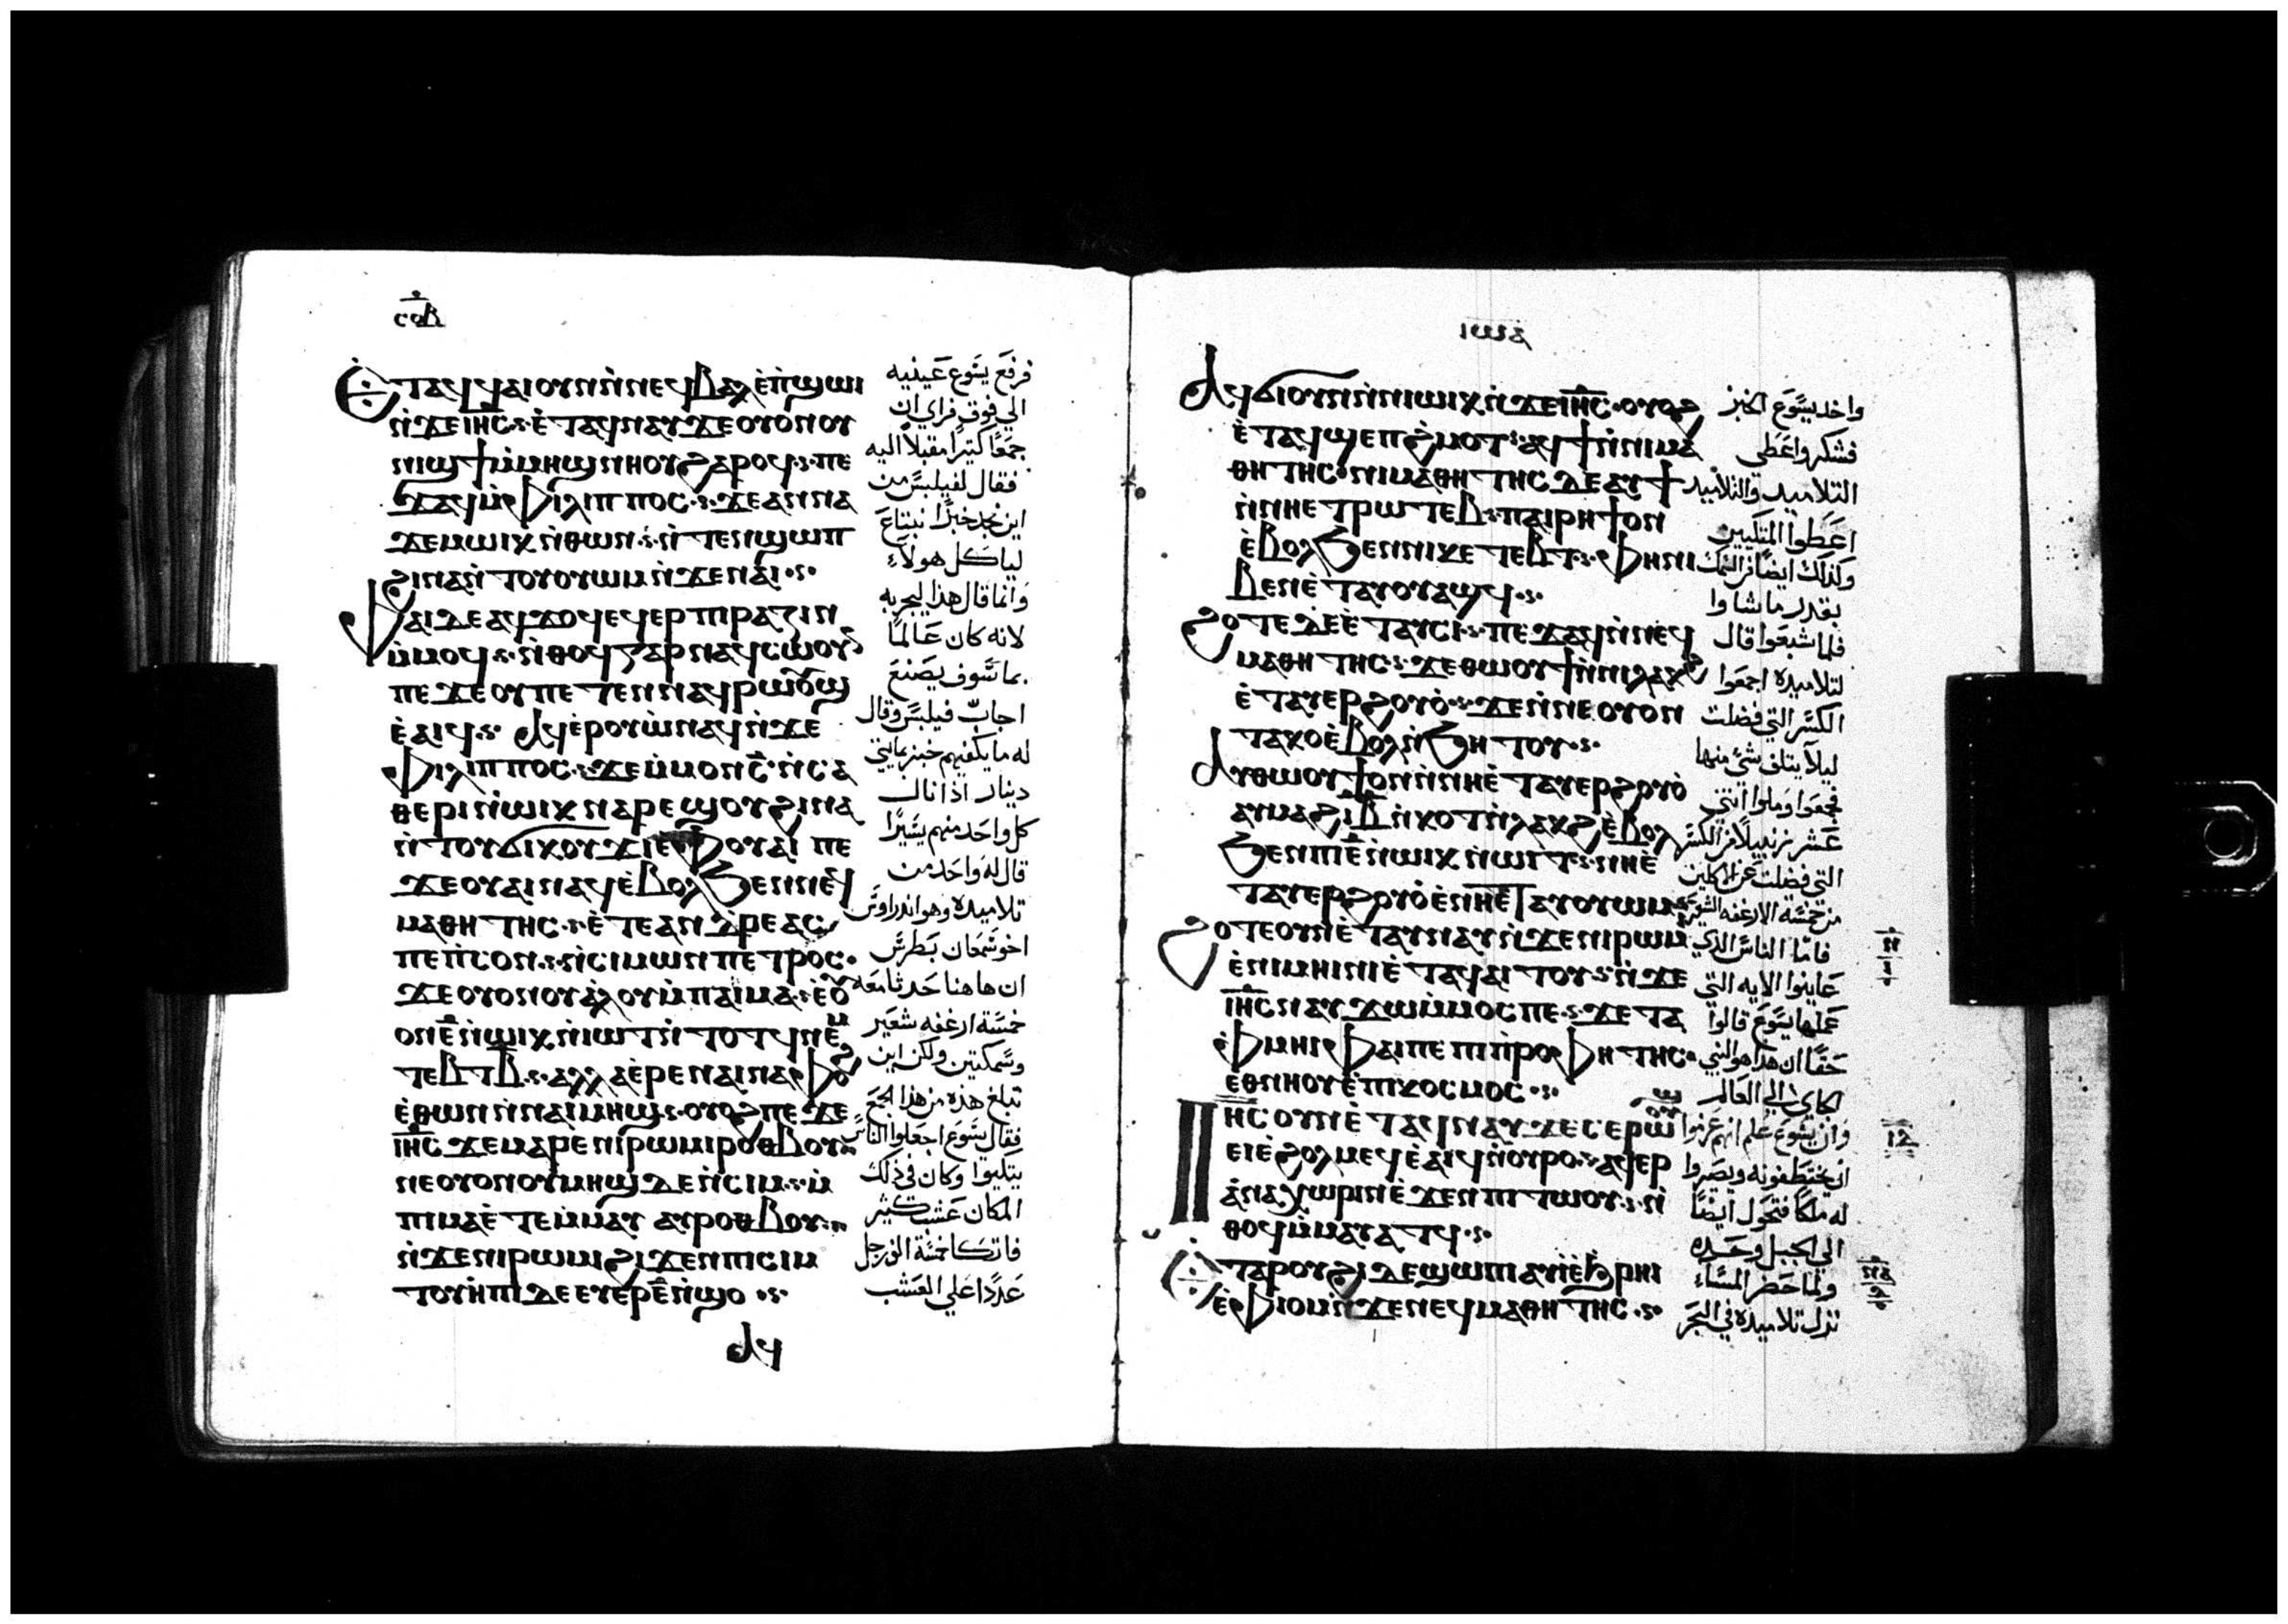 ⲥⲟⲃ
Ⲉⲧⲁϥϥⲁⲓⲟⲩⲛ ⲛ̀ⲛⲉϥⲃⲁⲗ ⲉ̀ⲡ̀ϣⲱⲓ
ⲛ̀ϫⲉ ⲓⲏⲥ ⲉ̀ⲧⲁϥⲛⲁⲩ ϫⲉ ⲟⲩⲟⲛ ⲟⲩ
ⲛⲓϣϯ ⲙ̀ⲙⲏϣ ⲛⲏⲟⲩ ϩⲁⲣⲟϥ ⲡⲉ
ϫⲁϥ ⲙ̀ⲫⲓⲗⲓⲡⲡⲟⲥ ϫⲉ ⲁⲛⲛⲁ
ϫⲉⲙ ⲱⲓⲕ ⲛ̀ⲑⲱⲛ ⲛ̀ⲧⲉⲛϣⲱⲡ
ϩⲓⲛⲁ ⲛ̀ⲧⲟⲩⲟⲩⲱⲙ ⲛ̀ϫⲉ ⲛⲁⲓ
Ⲫⲁⲓ ⲇⲉ ⲁϥϫⲟϥ ⲉϥⲉⲣⲡⲓⲣⲁⲍⲓⲛ
ⲙ̀ⲙⲟϥ ⲛ̀ⲑⲟϥ ⲅⲁⲣ ⲛⲁϥⲥⲱⲟⲩⲛ
ⲡⲉ ϫⲉ ⲟⲩ ⲡⲉⲧⲉⲛⲛⲁϥⲣⲱⲟⲩϣ
ⲉ̀ⲁⲓϥ Ⲁϥⲉⲣⲟⲩⲱ̀ ⲛⲁϥ ⲛ̀ϫⲉ
ⲫⲓⲗⲓⲡⲡⲟⲥ ϫⲉ ⲙ̀ⲙⲟⲛ ⲥ̅ ⲛ̀ⲥⲁ
ⲑⲉⲣⲓ ⲛ̀ⲱⲓⲕ ⲛⲁⲣⲉϣⲟⲩ ϩⲓⲛⲁ
ⲛ̀ⲧⲟⲩϭⲓ ⲕⲟⲩϫⲓ ⲉ̀ⲫⲟⲩⲁⲓ ⲡⲉ
ϫⲉ ⲟⲩⲁⲓ ⲛⲁϥ ⲉ̀ⲃⲟⲗ ϧⲉⲛ ⲛⲉϥ
ⲙⲁⲑⲏⲧⲏⲥ ⲉ̀ⲧⲉ ⲁⲛⲇⲣⲉⲁⲥ
ⲡⲉ ⲡ̀ⲥⲟⲛ ⲛ̀ⲥⲓⲙⲱⲛ ⲡⲉⲧⲣⲟⲥ
ϫⲉ ⲟⲩⲟⲛ ⲟⲩⲁⲗⲟⲩ ⲙ̀ⲡⲁⲓⲙⲁ ⲉ̀ⲟⲩ
ⲟⲛ ⲉ̅ ⲛ̀ⲱⲓⲕ ⲛ̀ⲓⲱⲧ ⲛ̀ⲧⲟⲧϥ ⲛⲉⲙ
ⲧⲉⲃⲧ ⲃ̅ ⲁⲗⲗⲁ ⲉ̀ⲣⲉ ⲛⲁⲓ ⲛⲁⲫⲟϩ
ⲉ̀ⲑⲱⲛ ⲛ̀ⲛⲁⲓⲙⲏϣ ⲟⲩⲟϩ ⲡⲉϫⲉ
ⲓⲏⲥ ϫⲉ ⲙⲁⲣⲉ ⲛⲓⲣⲱⲙⲓ ⲣⲟⲑⲃⲟⲩ
ⲛⲉ ⲟⲩⲟⲛ ⲟⲩⲙⲏϣ ⲇⲉ ⲛ̀ⲥⲓⲙ ⲙ̀
ⲡⲓⲙⲁ ⲉ̀ⲧⲉⲙ̀ⲙⲁⲩ ⲁⲩⲣⲟⲑⲃⲟⲩ
ⲛ̀ϫⲉ ⲛⲓⲣⲱⲙⲓ ϩⲓϫⲉⲛ ⲡⲓⲥⲓⲙ
ⲧⲟⲩⲏ̀ⲡⲓ ⲇⲉ ⲉⲩⲉⲣ ⲉ̅ ⲛ̀ϣⲟ
ⲁϥ
فرفع يسوع عينيه
الي فوق فراي ان
جمعًا كثيرًا مقبلا اليه
فقال لفيلبس من
اين نجد خبزًا نبتاع
لياكل هولاء
وانما قال هذا ليجربه
لانه كان عالمًا
بما سوف يصنع
اجاب فيلبس وقال
له ما يكفيهم خبز بمايتي
دينار اذا نال
كل واحد منهم يسيرًا
قال له واحد من
تلاميذه وهو اندراوس
اخو شمعان بطرس
ان هاهنا حدثا معه
خمسة ارغفه شعير
وسمكتين ولكن اين
تبلغ هذه من هذا الجمع
فقال يسوع اجعلوا الناس
يتكيوا وكان في ذلك
المكان عشب كثير
فاتكا خمسة الف رجل
عددًا علي العشب
ⲓⲱⲁ
Ⲁϥϭⲓ ⲟⲩⲛ ⲛ̀ⲛⲓⲱⲓⲕ ⲛ̀ϫⲉ ⲓⲏⲥ ⲟⲩⲟϩ
ⲉ̀ⲧⲁϥϣⲉⲡϩ̀ⲙⲟⲧ ⲁϥϯ ⲛ̀ⲛⲓⲙⲁ
ⲑⲏⲧⲏⲥ ⲛⲓⲙⲁⲑⲏⲧⲏⲥ ⲇⲉ ⲁⲩϯ
ⲛ̀ⲛⲏⲉⲧⲣⲱⲧⲉⲃ ⲡⲁⲓⲣⲏϯ ⲟⲛ
ⲉ̀ⲃⲟⲗ ϧⲉⲛ ⲛⲓⲕⲉⲧⲉⲃⲧ ⲫⲏ ⲛⲓ
ⲃⲉⲛ ⲉ̀ⲧⲁⲩⲟⲩⲁϣϥ
Ϩⲟⲧⲉ ⲇⲉ ⲉ̀ⲧⲁⲩⲥⲓ ⲡⲉϫⲁϥ ⲛ̀ⲛⲉϥ
ⲙⲁⲑⲏⲧⲏⲥ ϫⲉ ⲑⲱⲟⲩϯ ⲛ̀ⲛⲓⲗⲁⲕϩ
ⲉ̀ⲧⲁⲩⲉⲣϩⲟⲩⲟ̀ ϫⲉ ⲛ̀ⲛⲉ ⲟⲩⲟⲛ
ⲧⲁⲕⲟ ⲉ̀ⲃⲟⲗ ⲛ̀ϧⲏⲧⲟⲩ
Ⲁⲩⲑⲱⲟⲩϯ ⲟⲛ ⲛ̀ⲛⲏ ⲉ̀ⲧⲁⲩⲉⲣϩⲟⲩⲟ̀
ⲁⲩⲙⲁϩ ⲓⲃ̅ ⲛ̀ⲕⲟⲧ ⲛ̀ⲗⲁⲕϩ ⲉ̀ⲃⲟⲗ
ϧⲉⲛ ⲡⲓⲉ̅ ⲛ̀ⲱⲓⲕ ⲛ̀ⲓⲱⲧ ⲛⲏ ⲉ̀
ⲧⲁⲩⲉⲣϩⲟⲩⲟ̀ ⲉ̀ⲛⲏ ⲉ̀ⲧⲁⲩⲟⲩⲱⲙ
Ϩⲟⲧⲉ ⲟⲩⲛ ⲉ̀ⲧⲁⲩⲛⲁⲩ ⲛ̀ϫⲉ ⲛⲓⲣⲱⲙⲓ
ⲉ̀ⲛⲓⲙⲏⲓⲛⲓ ⲉ̀ⲧⲁϥⲁⲓⲧⲟⲩ ⲛ̀ϫⲉ
ⲓⲏⲥ ⲛⲁⲩϫⲱ ⲙ̀ⲙⲟⲥ ⲡⲉ ϫⲉ ⲧⲁ
ⲫⲙⲏⲓ ⲫⲁⲓ ⲡⲉ ⲡⲓⲡ̀ⲣⲟⲫⲏⲧⲏⲥ
ⲉⲑⲛⲏⲟⲩ ⲉ̀ⲡⲓⲕⲟⲥⲙⲟⲥ
Ⲓⲏⲥ ⲟⲩⲛ ⲉ̀ⲧⲁϥⲛⲁⲩ ϫⲉ ⲥⲉⲣⲱⲟⲩϣ
ⲉⲓ ⲉ̀ϩⲟⲗⲙⲉϥ ⲉ̀ⲁⲓϥ ⲛ̀ⲟⲩⲣⲟ ⲁϥⲉⲣ
ⲁ̀ⲛⲁⲭⲱⲣⲓⲛ ⲉ̀ϫⲉⲛ ⲡⲓⲧⲱⲟⲩ ⲛ̀
ⲑⲟϥ ⲙ̀ⲙⲁⲩⲁⲧϥ
Ⲉⲧⲁ ⲣⲟⲩϩⲓ ⲇⲉ ϣⲱⲡⲓ ⲁⲩⲓ̀ ⲉ̀ϧⲣⲏⲓ
ⲉ̀ⲫⲓⲟⲙ ⲛ̀ϫⲉ ⲛⲉϥⲙⲁⲑⲏⲧⲏⲥ
واخد يسوع الخبز
فشكر واعطي
التلاميد والتلاميد
اعطوا المتكيين
وكذلك ايضًا من السمك
بقدر ما شاوا
فلما شبعوا قال
لتلاميده اجمعوا
الكسر التي فضلت
ليلا يتلف شئ منها
فجمعوا وملوا اثنتي
عشر زنبيلًا من الكسر
التي فضلت عن الاكلين
من خمسة الارغفه الشعير
فاما الناس الذي
عاينوا الايه التي
عملها يسوع قالوا
حقًا ان هذا هو النبي
الجاي الي العالم
وان يسوع علم انهم عزموا
ان يختطفونه ويصيروا
له ملكًا فتحول ايضًا
الي الجبل وحده
ولما حضر المساء
نزل تلاميذه في البحر